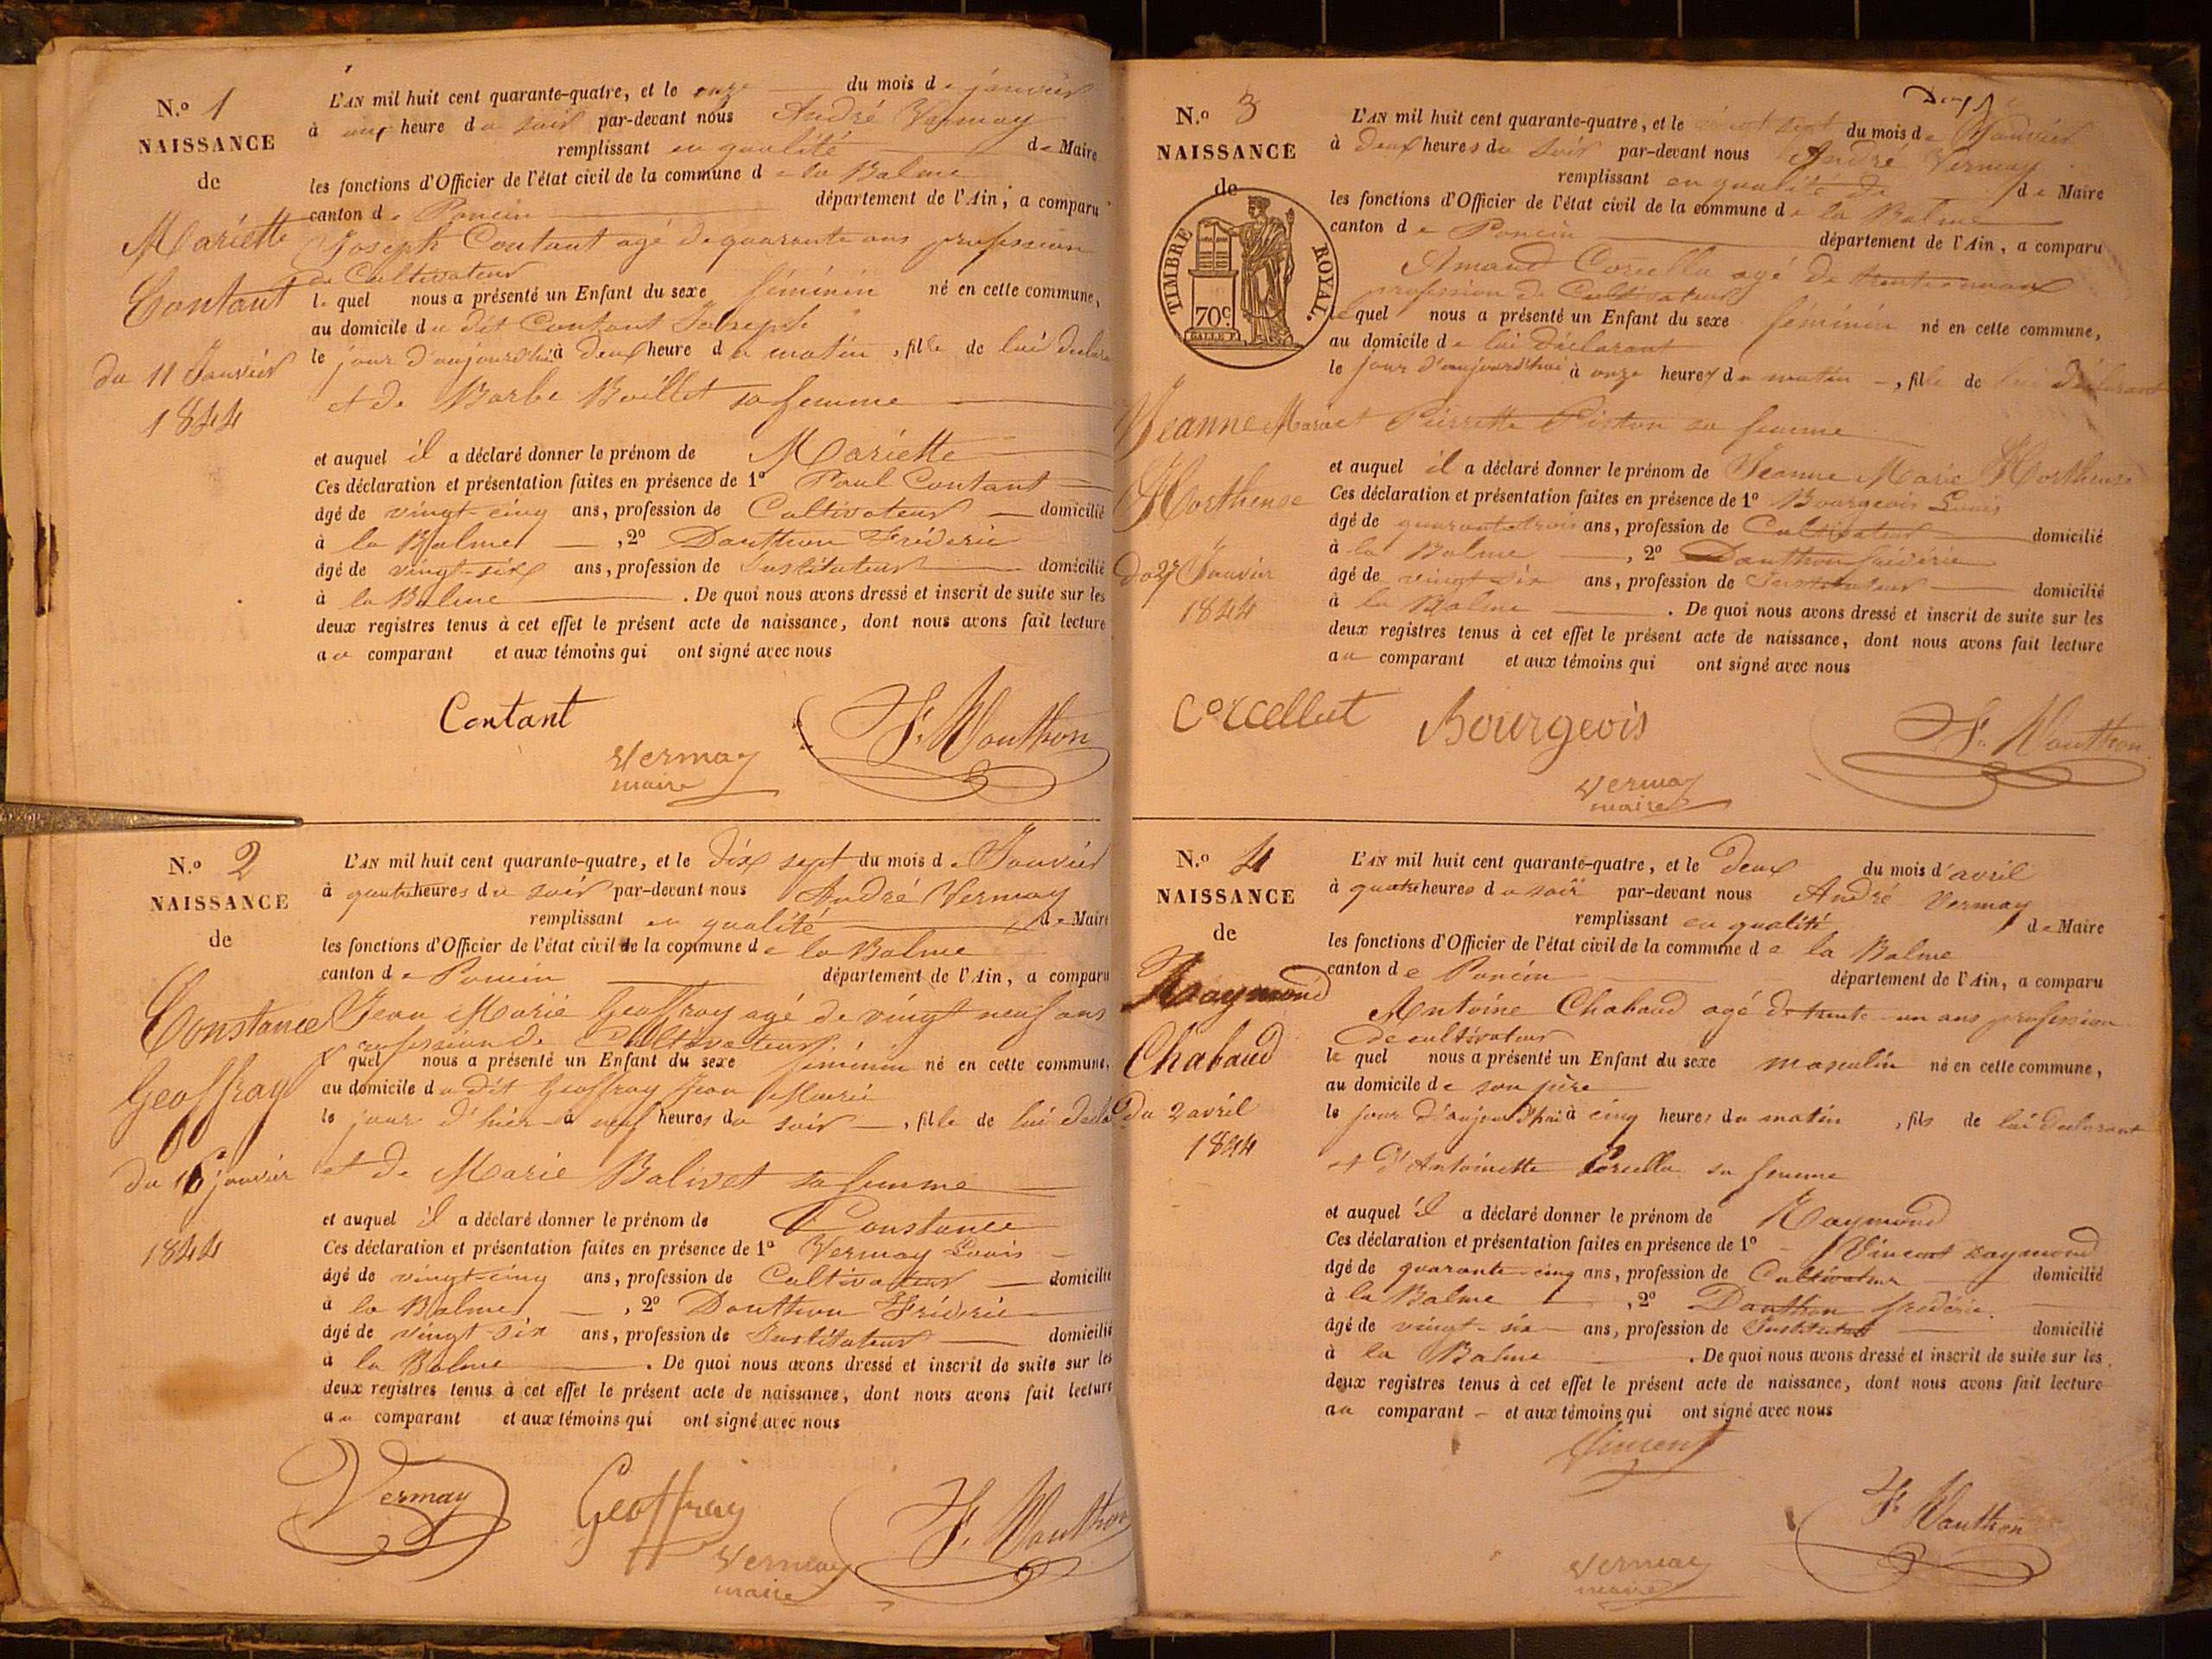 N.o 1
NAISSANCE
de
Mariette
Contant
du 11 Janvier
1844
L'AN mil huit cent quarante-quatre, et le onze du mois de janvier
à une heure du soir par-devant nous André Vermay
remplissant en qualité de Maire
les fonctions d'Officier de l'état civil de la commune de la Balme
canton de Poncin département de l'Ain, a comparu
Joseph Contant agé de quarante ans profession
de Cultivateur
le quel nous a présenté un Enfant du sexe féminin né en cette commune,
au domicile du dit Contant Joseph
le jour d'aujourd'hui à deux heure du matin, fille de lui déclara
et de Barbe Boillet sa femme
et auquel il a déclaré donner le prénom de Mariette
Ces déclaration et présentation faites en présence de 1o Paul Contant
âgé de vingt-cinq ans, profession de Cultivateur domicilié
à la Balme, 2o Douthon Fréderic
âgé de vingt-six ans, profession de Instituteur domicilié
à la Balme. De quoi nous avons dressé et inscrit de suite sur les
deux registres tenus à cet effet le présent acte de naissance, dont nous avons fait lecture
au comparant et aux témoins qui ont signé avec nous
Contant
Vermay
maire
F. Douthon
N.o 2
NAISSANCE
de
Constance
Geoffray
du 16 janvier
1844
L'AN mil huit cent quarante-quatre, et le dix sept du mois de Janvier
à quatre heures du soir par-devant nous André Vermay
remplissant en qualité de Maire
les fonctions d'Officier de l'état civil de la commune de la Balme
canton de Poncin département de l'Ain, a comparu
Jean Marie Geoffray agé de vingt neuf ans
profession de Cultivateur
le quel nous a présenté un Enfant du sexe féminin né en cette commune,
au domicile du dit Geoffray Jean Marie
le jour d'hier à neuf heures du soir, fille de lui décla
et de Marie Balivet sa femme
et auquel il a déclaré donner le prénom de Constance
Ces déclaration et présentation faites en présence de 1o Vermay Louis
âgé de vingt-cinq ans, profession de Cultivateur domicilié
à la Balme, 2o Douthon Fréderic
âgé de vingt six ans, profession de Instituteur domicilié
à la Balme. De quoi nous avons dressé et inscrit de suite sur les
deux registres tenus à cet effet le présent acte de naissance, dont nous avons fait lecture
au comparant et aux témoins qui ont signé avec nous
Vermay
Geoffray
Vermay
maire
F. Douthon
N.o 3
NAISSANCE
de
TIMBRE ROYAL.
70c.
Jeanne Marie
Horthense
du 27 Janvier
1844
L'AN mil huit cent quarante-quatre, et le vingt sept du mois de Janvier
à deux heures du soir par-devant nous André Vermay
remplissant en qualité de de Maire
les fonctions d'Officier de l'état civil de la commune de la Balme
canton de Poncin département de l'Ain, a comparu
Amand Corcella agé de
profession de Cultivateur
le quel nous a présenté un Enfant du sexe féminin né en cette commune,
au domicile de lui déclarant
le jour d'aujourd'hui à onze heures du matin, fille de lui déclarant
et Pierrette Piston sa femme
et auquel il a déclaré donner le prénom de Jeanne Marie Horthense
Ces déclaration et présentation faites en présence de 1o Bourgeois Louis
âgé de quarante trois ans, profession de Cultivateur domicilié
à la Balme, 2o Douthon fréderic
âgé de vingt six ans, profession de Instituteur domicilié
à la Balme. De quoi nous avons dressé et inscrit de suite sur les
deux registres tenus à cet effet le présent acte de naissance, dont nous avons fait lecture
au comparant et aux témoins qui ont signé avec nous
Corcellut
Bourgeois
F. Douthon
Vermay
maire
N.o 4
NAISSANCE
de
Raymond
Chabaud
du 2 avril
1844
L'AN mil huit cent quarante-quatre, et le deux du mois d'avril
à quatre heures du soir par-devant nous André Vermay
remplissant en qualité de Maire
les fonctions d'Officier de l'état civil de la commune de la Balme
canton de Poncin département de l'Ain, a comparu
Antoine Chabaud agé de trente-un ans profession
de cultivateur
le quel nous a présenté un Enfant du sexe masculin né en cette commune,
au domicile de son père
le jour d'aujourd'hui à cinq heures du matin, fils de lui déclarant
et d'Antoinette Corcella sa femme
et auquel il a déclaré donner le prénom de Raymond
Ces déclaration et présentation faites en présence de 1o Vincent Raymond
âgé de quarante-cinq ans, profession de Cultivateur domicilié
à la Balme, 2o Douthon fréderic
âgé de vingt-six ans, profession de Instituteur domicilié
à la Balme. De quoi nous avons dressé et inscrit de suite sur les
deux registres tenus à cet effet le présent acte de naissance, dont nous avons fait lecture
au comparant et aux témoins qui ont signé avec nous
Vincent
F. Douthon
Vermay
maire